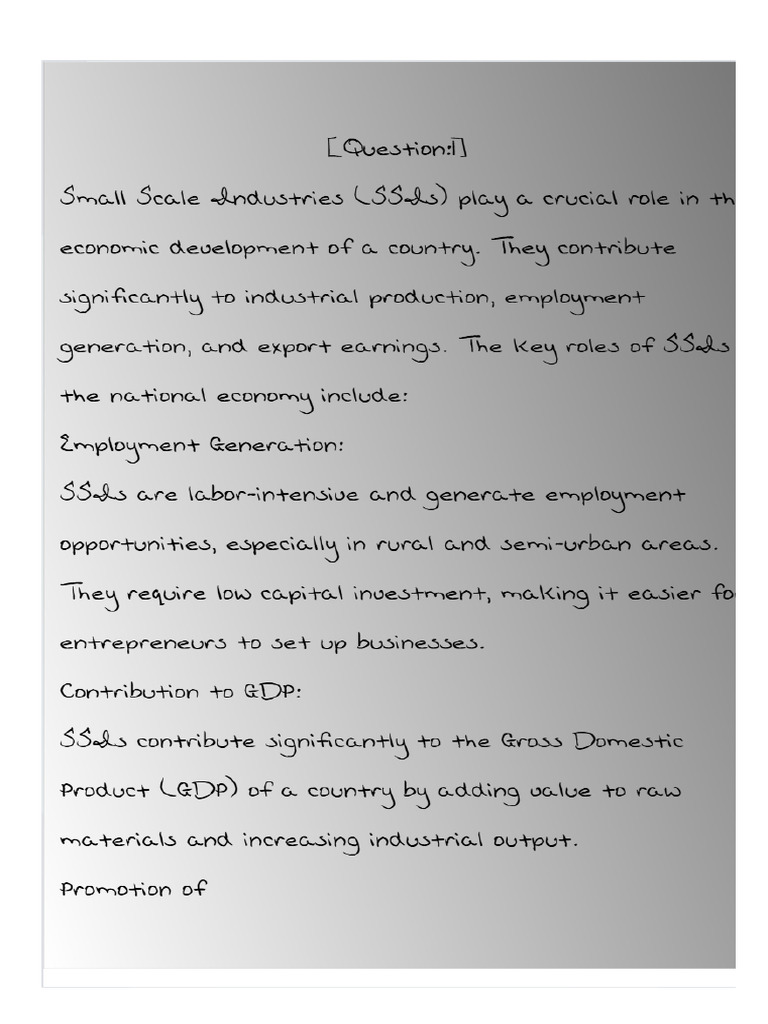 [Question:1]
Small Scale Industries (SSIs) play a crucial role in th
economic development of a country. They contribute
significantly to industrial production, employment
generation, and export earnings. The key roles of SSIs
the national economy include:
Employment Generation:
SSIs are labor-intensive and generate employment
opportunities, especially in rural and semi-urban areas.
They require low capital investment, making it easier fo
entrepreneurs to set up businesses.
Contribution to GDP:
SSIs contribute significantly to the Gross Domestic
Product (GDP) of a country by adding value to raw
materials and increasing industrial output.
Promotion of